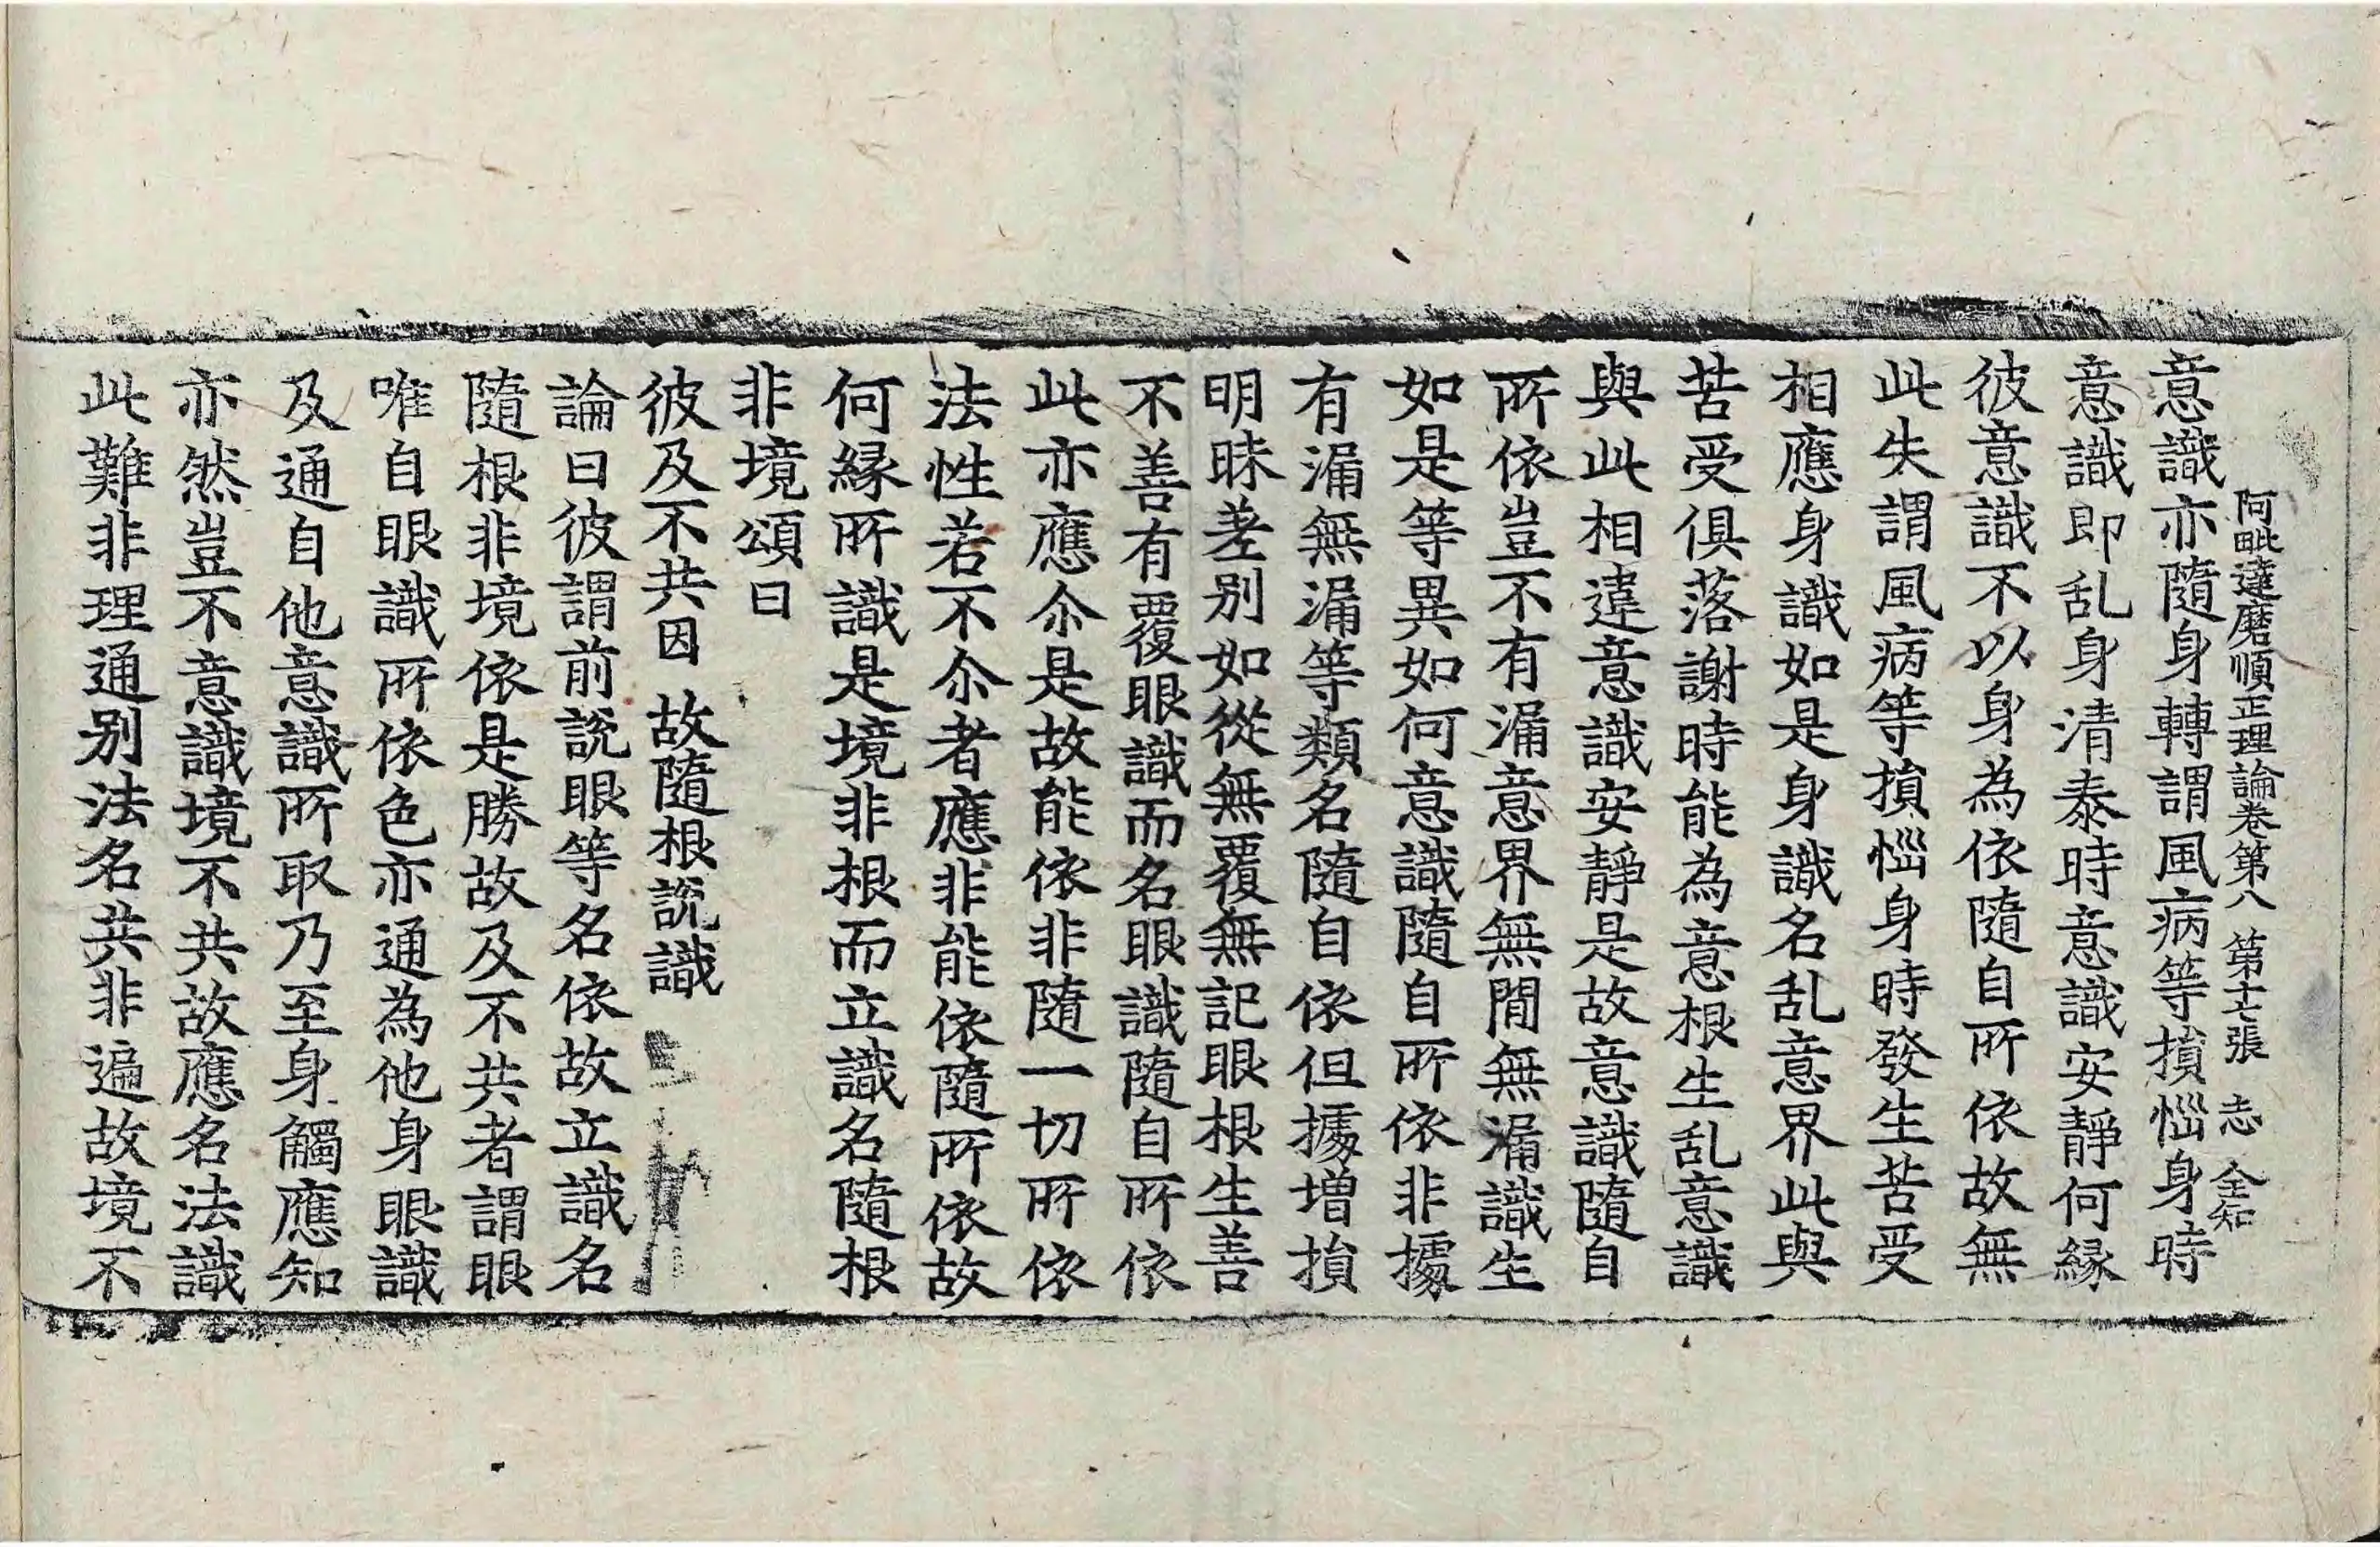 阿毗達磨順正理論卷第八　第十七張　志　全知
意識亦隨身轉謂風病等損惱身時
意識即乱身清泰時意識安靜何縁
彼意識不以身為依隨自所依故無
此失謂風病等損惱身時發生苦受
相應身識如是身識名乱意界此與
苦受俱落謝時能為意根生乱意識
與此相違意識安靜是故意識隨自
所依豈不有漏意界無間無漏識生
如是等異如何意識隨自所依非據
有漏無漏等類名隨自依但據增損
明昧差別如從無覆無記眼根生善
不善有覆眼識而名眼識隨自所依
此亦應尒是故能依非隨一切所依
法性若不尒者應非能依隨所依故
何縁所識是境非根而立識名隨根
非境頌曰
彼及不共因　故隨根說識
論曰彼謂前說眼等名依故立識名
隨根非境依是勝故及不共者謂眼
唯自眼識所依色亦通為他身眼識
及通自他意識所取乃至身觸應知
亦然豈不意識境不共故應名法識
此難非理通別法名共非遍故境不